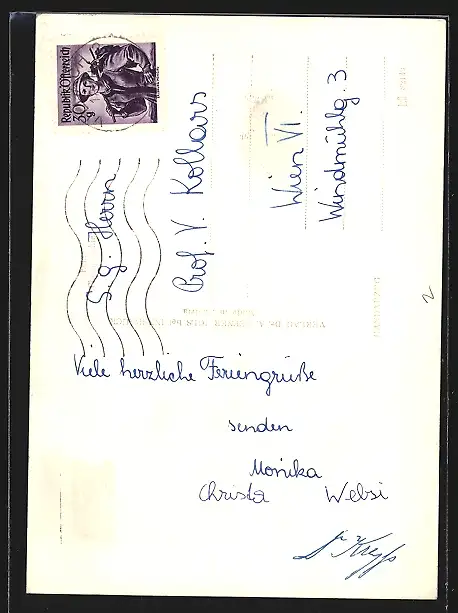 Republik Österreich
30 g
S. g. Herrn
Prof. V. Kollars
Wien VI.
Windmühlg. 3
Viele herzliche Feriengrüße
senden
Monika
Christa Websi